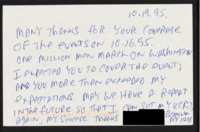 10.19.95.
MANY THANKS FOR YOUR COVERAGE
OF THE EVENTS ON 10.16.95.
ONE MILLION MAN MARCH ON WASHINGTON
I EXPECTED YOU TO COVER THE EVENT;
AND YOU MORE THAN EXCEEDED MY
EXPECTATIONS MAY WE HAVE A REPEAT
IN THE FUTURE SO THAT I CAN SET MY VCR?
AGAIN, MY SINCERE THANKS